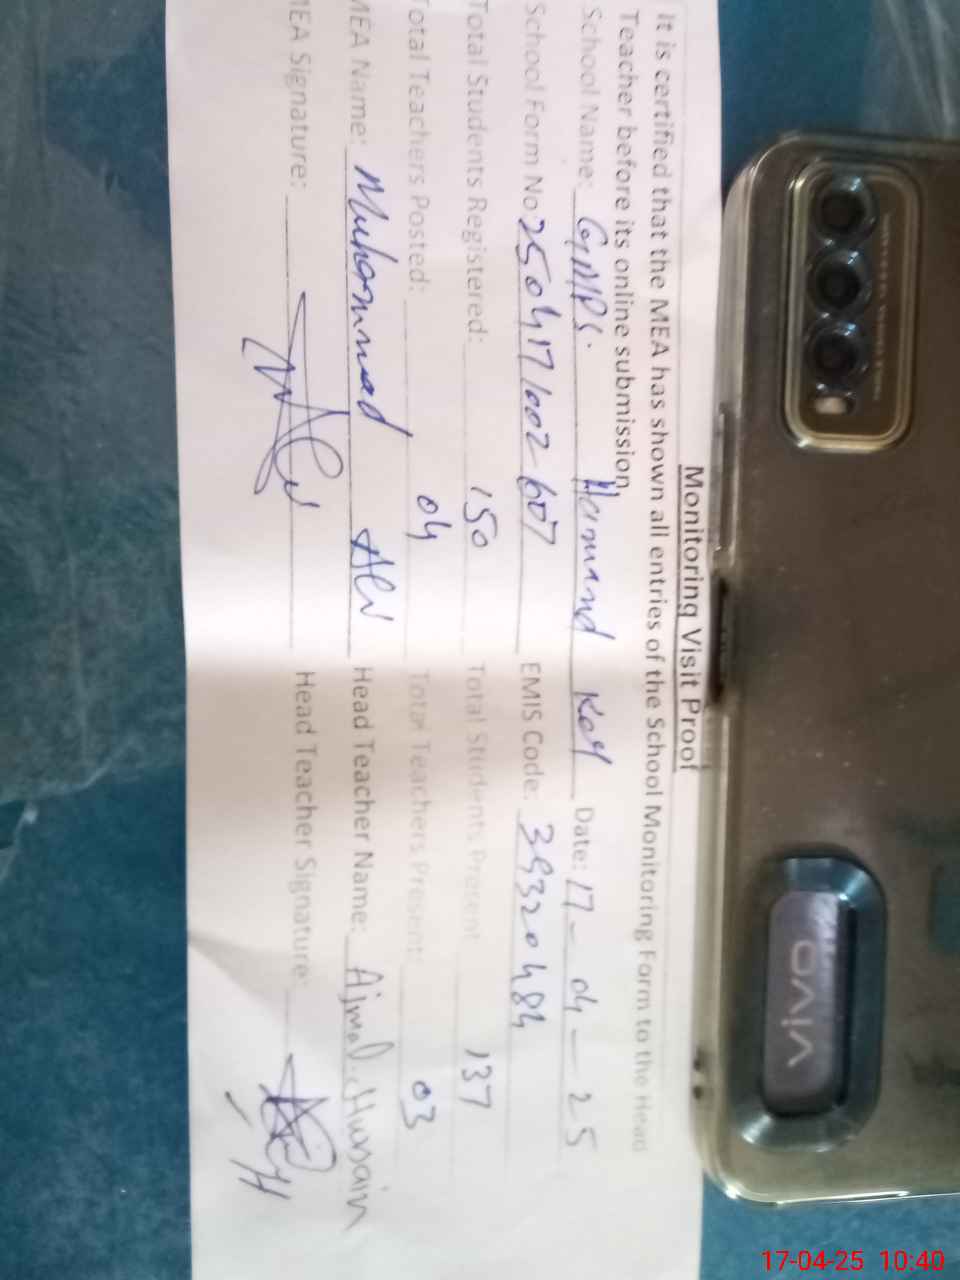 Monitoring Visit Proof
It is certified that the MEA has shown all entries of the School Monitoring Form to the Head
Teacher before its online submission
School Name: GMPS. Kot Date: 17-04-25
School Form No: 2504171002607 EMIS Code: 39320484
Total Students Registered: 150 Total Students Present 137
Total Teachers Posted: 04 Total Teachers Present: 03
MEA Name: Muhammad Ali Head Teacher Name: Ajmal Hussain
MEA Signature: Head Teacher Signature:
vivo
17-04-25 10:40